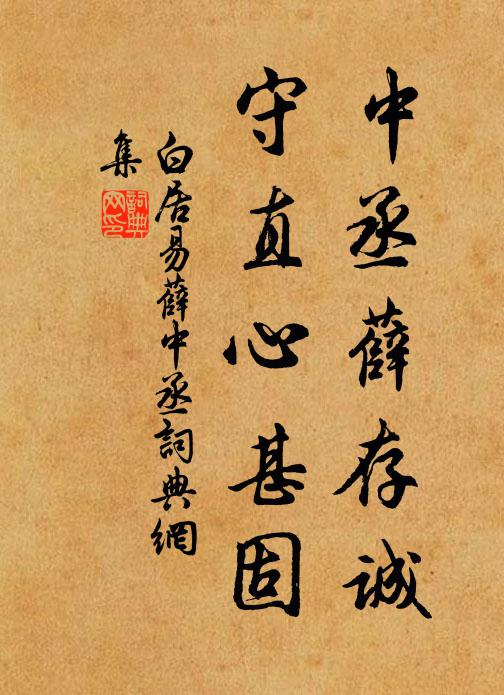 中丞薛存誠
守直心甚固
白居易薛中丞詞典網
集
詞典
网印